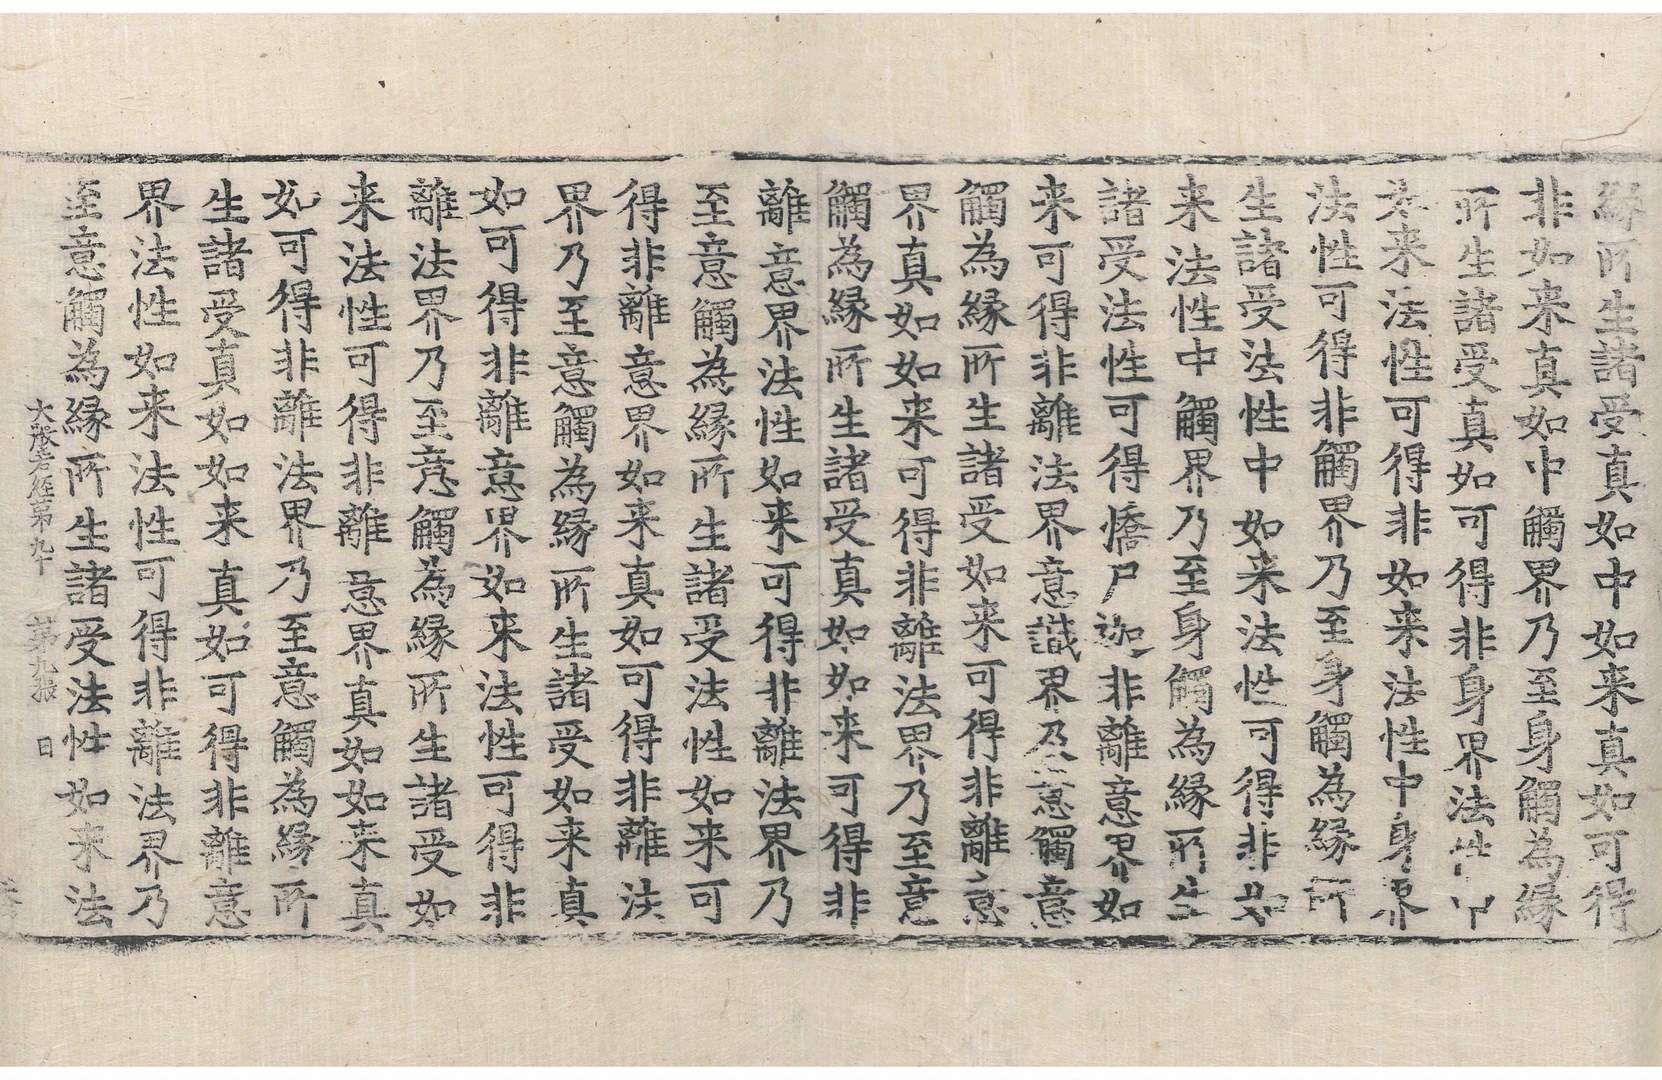 緣所生諸受真如中如来真如可得
非如来真如中觸界乃至身觸為緣
所生諸受真如可得非身界法性中
如来法性可得非如来法性中身界
法性可得非觸界乃至身觸為緣所
生諸受法性中如来法性可得非如
来法性中觸界乃至身觸為緣所生
諸受法性可得憍尸迦非離意界如
来可得非離法界意識界及意觸意
觸為緣所生諸受如来可得非離意
界真如如来可得非離法界乃至意
觸為緣所生諸受真如如来可得非
離意界法性如来可得非離法界乃
至意觸為緣所生諸受法性如来可
得非離意界如来真如可得非離法
界乃至意觸為緣所生諸受如来真
如可得非離意界如来法性可得非
離法界乃至意觸為緣所生諸受如
来法性可得非離意界真如如来真
如可得非離法界乃至意觸為緣所
生諸受真如如来真如可得非離意
界法性如来法性可得非離法界乃
至意觸為緣所生諸受法性如来法
大般若經第九十 第九張 日